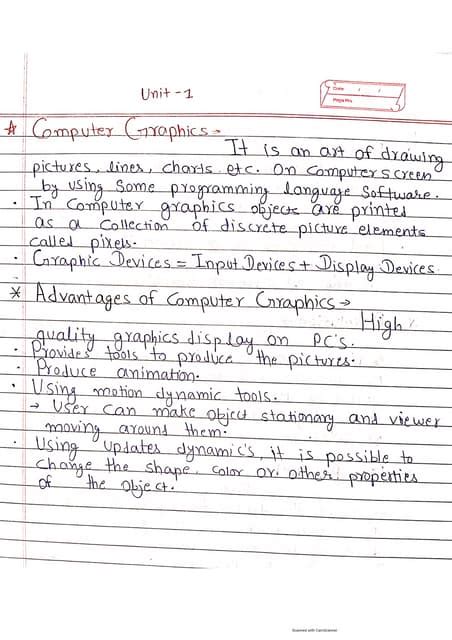 Unit -1
Date / /
Page No.
* Computer Graphics -
It is an art of drawing
pictures, lines, charts etc. On Computer screen
by using Some programming language Software.
• In Computer graphics objects are printed
as a Collection of discrete picture elements
called pixels.
• Graphic Devices = Input Devices + Display Devices
* Advantages of Computer Graphics →
High
quality graphics display on PC's.
• Provides tools to produce the pictures.
• Produce animation.
• Using motion dynamic tools.
→ User Can make object stationary and viewer
moving around them.
• Using Updates dynamic's, it is possible to
Change the shape. Color or other properties
of the Object.
Scanned with CamScanner